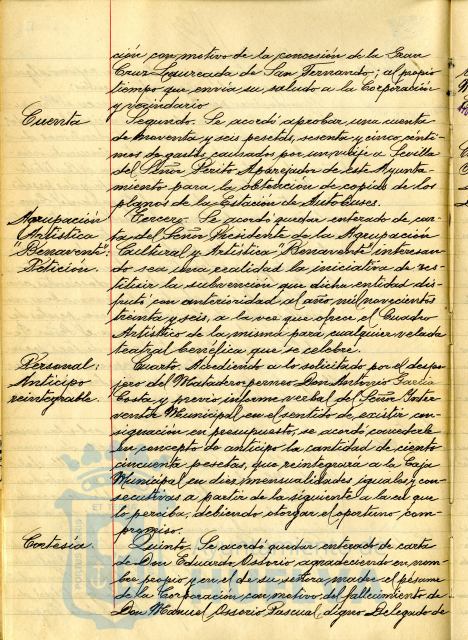 ción con motivo de la concesión de la Gran
Cruz Laureada de San Fernando; al propio
tiempo que envía su saludo a la Corporación
y vecindario
Cuenta
Segundo. Se acordó aprobar una cuenta
de noventa y seis pesetas, sesenta y cinco cénti-
mos de gastos causados por un viaje a Sevilla
del Señor Perito Aparejador de este Ayunta-
miento para la obtención de copias de los
planos de la Estación de Autobuses.
Agrupación
Artística
"Benavente":
Petición.
Tercero. Se acordó quedar enterado de car-
ta del Señor Presidente de la Agrupación
Cultural y Artística "Benavente" interesan-
do sea una realidad la iniciativa de res-
tituir la subvención que dicha entidad dis-
frutó con anterioridad al año mil novecientos
treinta y seis, a la vez que ofrece el Cuadro
Artístico de la misma para cualquier velada
teatral benéfica que se celebre.
Personal:
Anticipo
reintegrable.
Cuarto. Accediendo a lo solicitado por el
del Matadero Don Antonio García
Costa y previo informe verbal del Señor Inter-
ventor Municipal en el sentido de existir con-
signación en presupuesto, se acordó concederle
en concepto de anticipo la cantidad de ciento
cincuenta pesetas, que reintegrará a la Caja
Municipal en diez mensualidades iguales y con-
secutivas a partir de la siguiente a la en que
lo perciba, debiendo otorgar el oportuno com-
promiso.
Cortesía.
Quinto. Se acordó quedar enterado de carta
de Don Eduardo Ossorio agradeciendo en nom-
bre propio y en el de su señora madre el pésame
de la Corporación con motivo del fallecimiento de
Don Manuel Ossorio Pascual, digno Delegado de